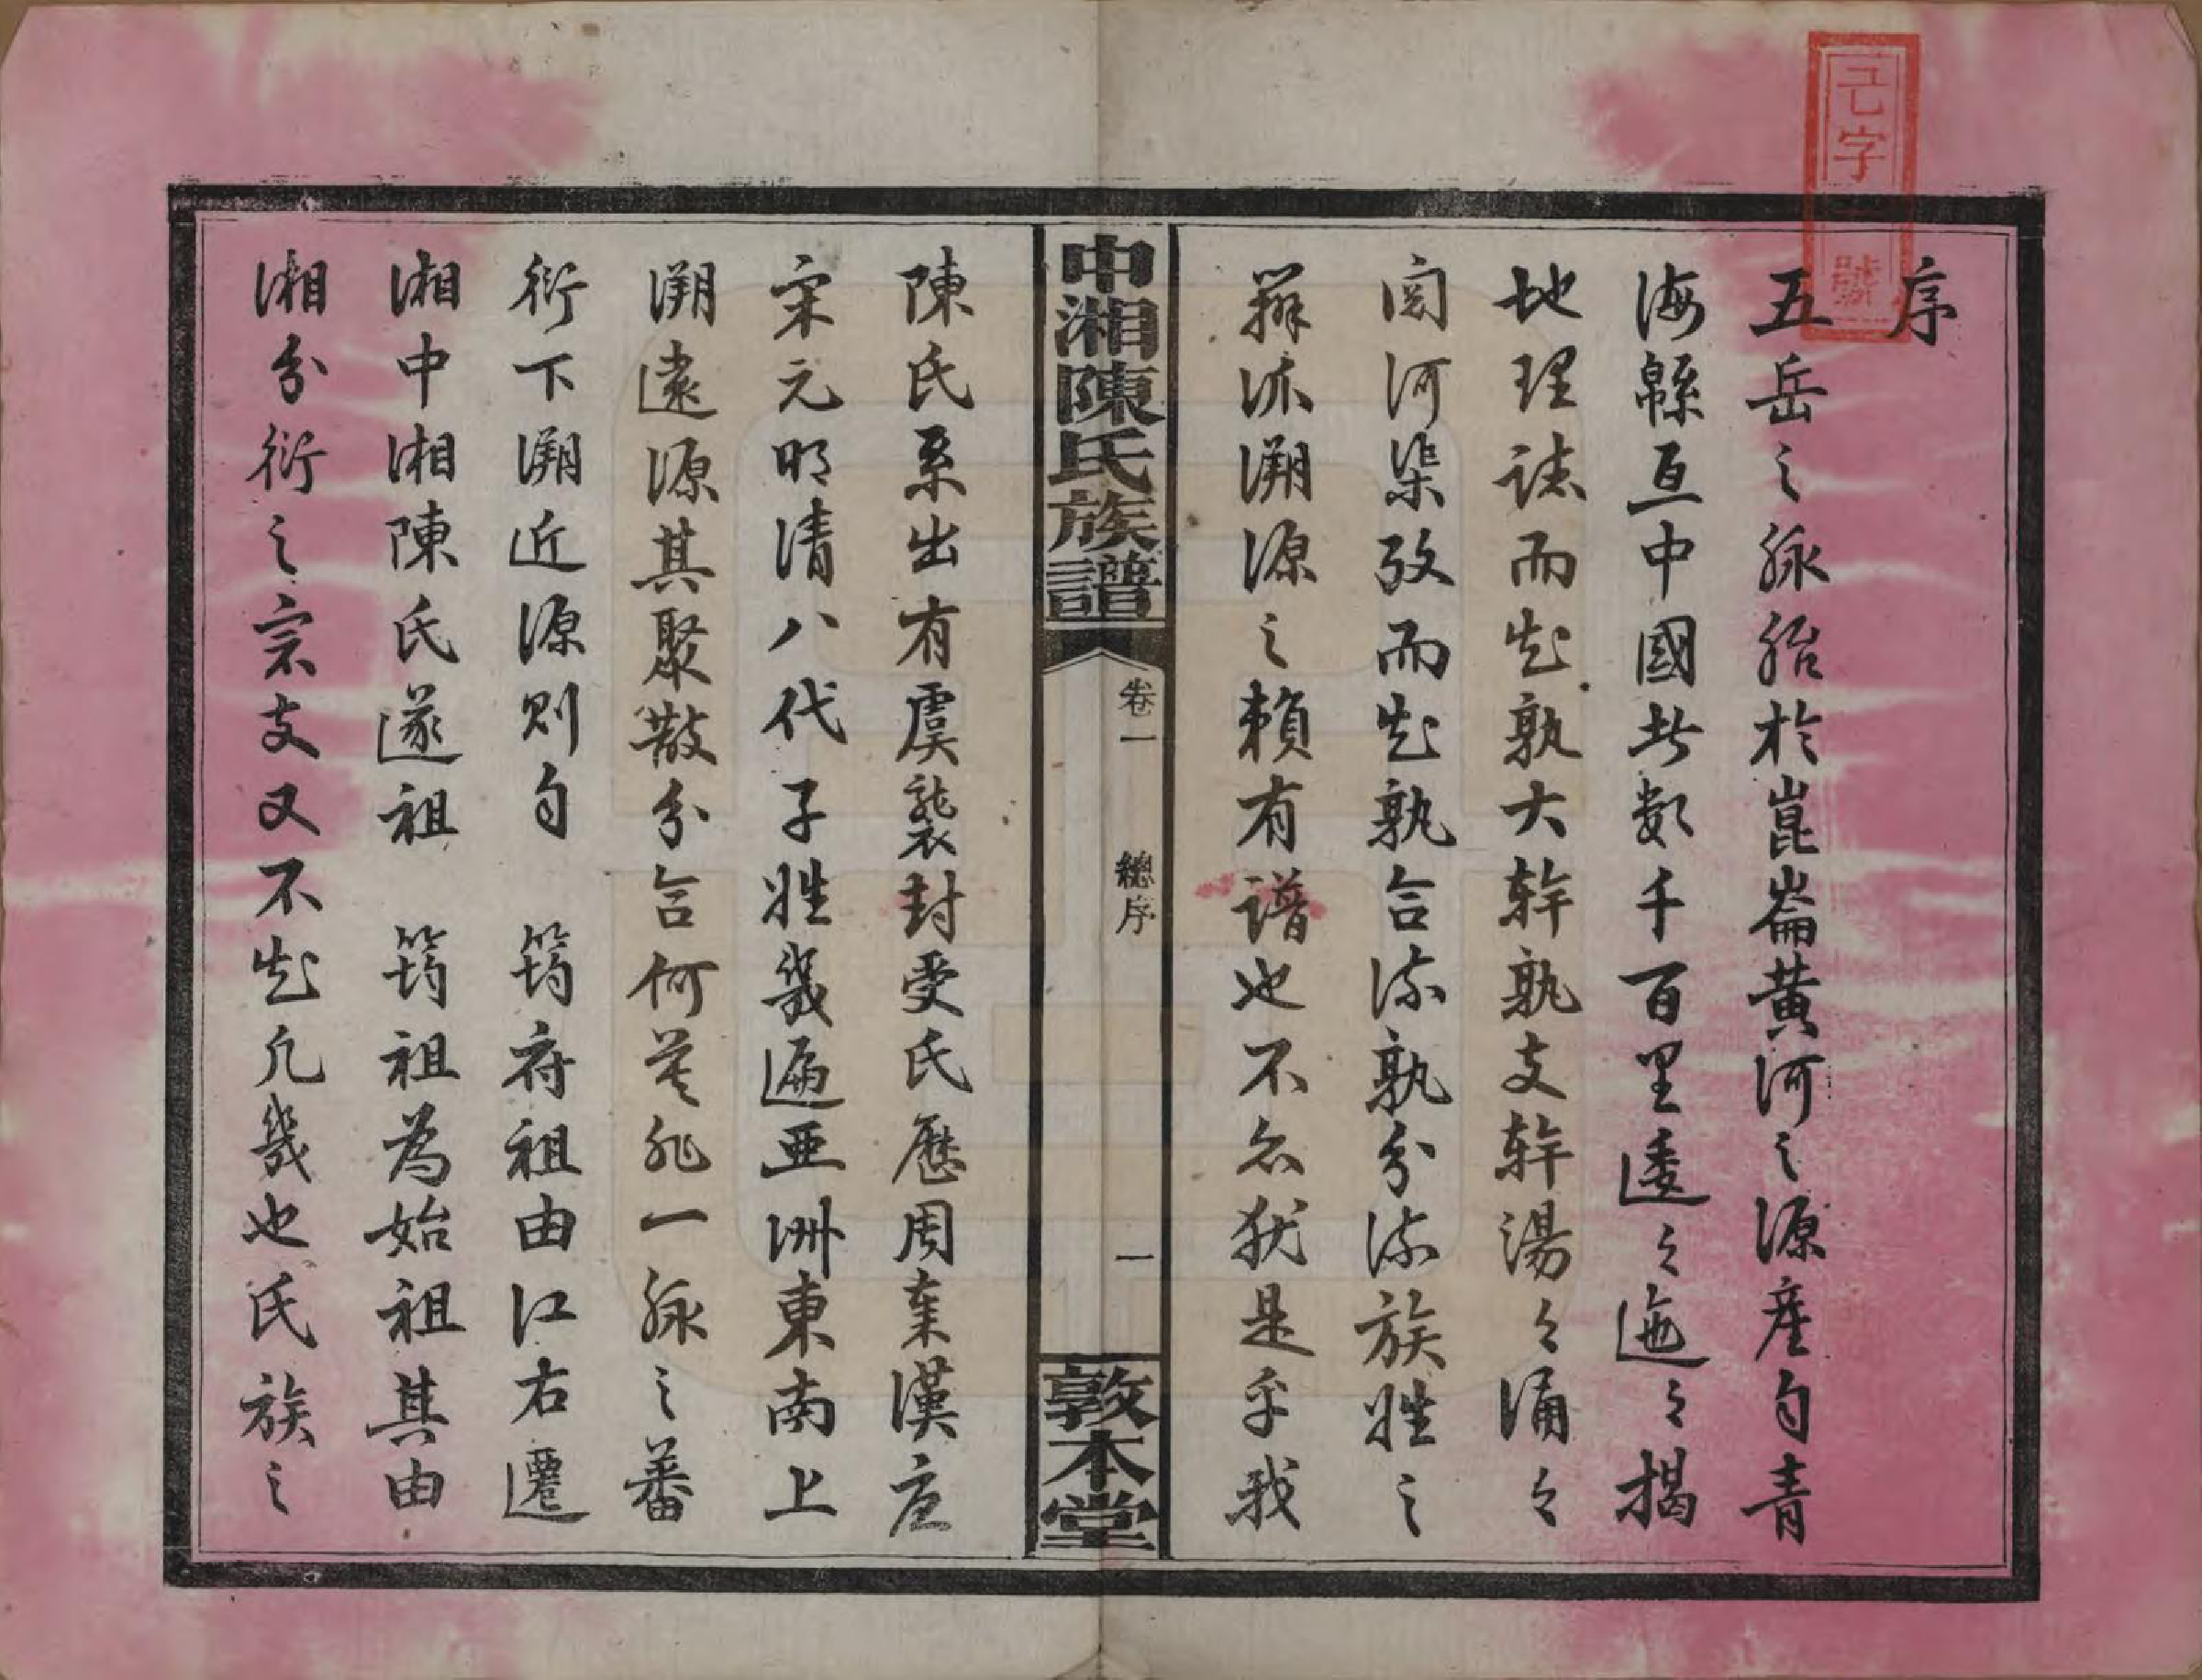 己字
號
序
五岳之脉胎於崑崙黃河之源產自青
海緜亘中國皆數千百里逶々迤々揭
地理誌而知孰大幹孰支幹湯々涌々
閱河渠攷而知孰合流孰分流族姓之
辨派溯源之賴有譜也不亦猶是乎我
中湘陳氏族譜
卷一
總序
一
敦本堂
陳氏系出有虞襲封受氏歷周秦漢唐
宋元明清八代子姓幾遍亞洲東南上
溯遠源其聚散分合何莫非一脉之蕃
衍下溯近源則自 筠府祖由江右遷
湘中湘陳氏遂祖 筠祖為始祖其由
湘分衍之宗支又不知凡幾也氏族之